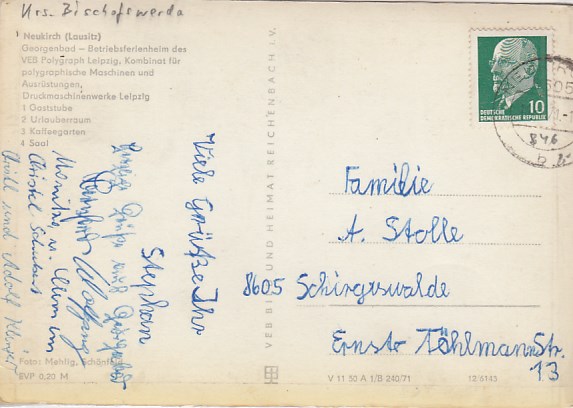 Krs. Bischofswerda
Neukirch (Lausitz)
Georgenbad – Betriebsferienheim des
VEB Polygraph Leipzig, Kombinat für
polygraphische Maschinen und
Ausrüstungen,
Druckmaschinenwerke Leipzig
1 Gaststube
2 Urlauberraum
3 Kaffeegarten
4 Saal
Viele Grüße Ihr
Stephan
Herzliche Grüße und
Wolfgang
Monika u.
Christel Schubert
und Adolf
Foto: Mehlig, Schönfeld
EVP 0,20 M
VEB BILD UND HEIMAT REICHENBACH i.V.
V 11 50 A 1/B 240/71
12 6143
10
DEUTSCHE
DEMOKRATISCHE REPUBLIK
846
b
Familie
A. Stolle
8605 Schirgiswalde
Ernst Tählmann Str.
13